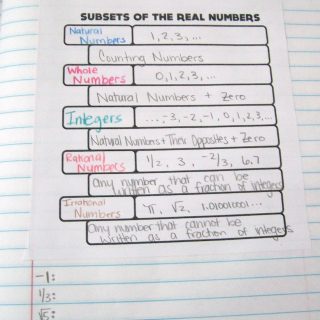 SUBSETS OF THE REAL NUMBERS
Natural Numbers
1, 2, 3, ...
Counting Numbers
Whole Numbers
0, 1, 2, 3, ...
Natural Numbers + Zero
Integers
...-3, -2, -1, 0, 1, 2, 3, ...
Natural Numbers + Their Opposites + Zero
Rational Numbers
1/2, 3, -2/3, 6.7
Any number that can be
written as a fraction of integers
Irrational Numbers
π, √2, 1.010010001...
Any number that cannot be
written as a fraction of integers
-1:
1/3:
√5: